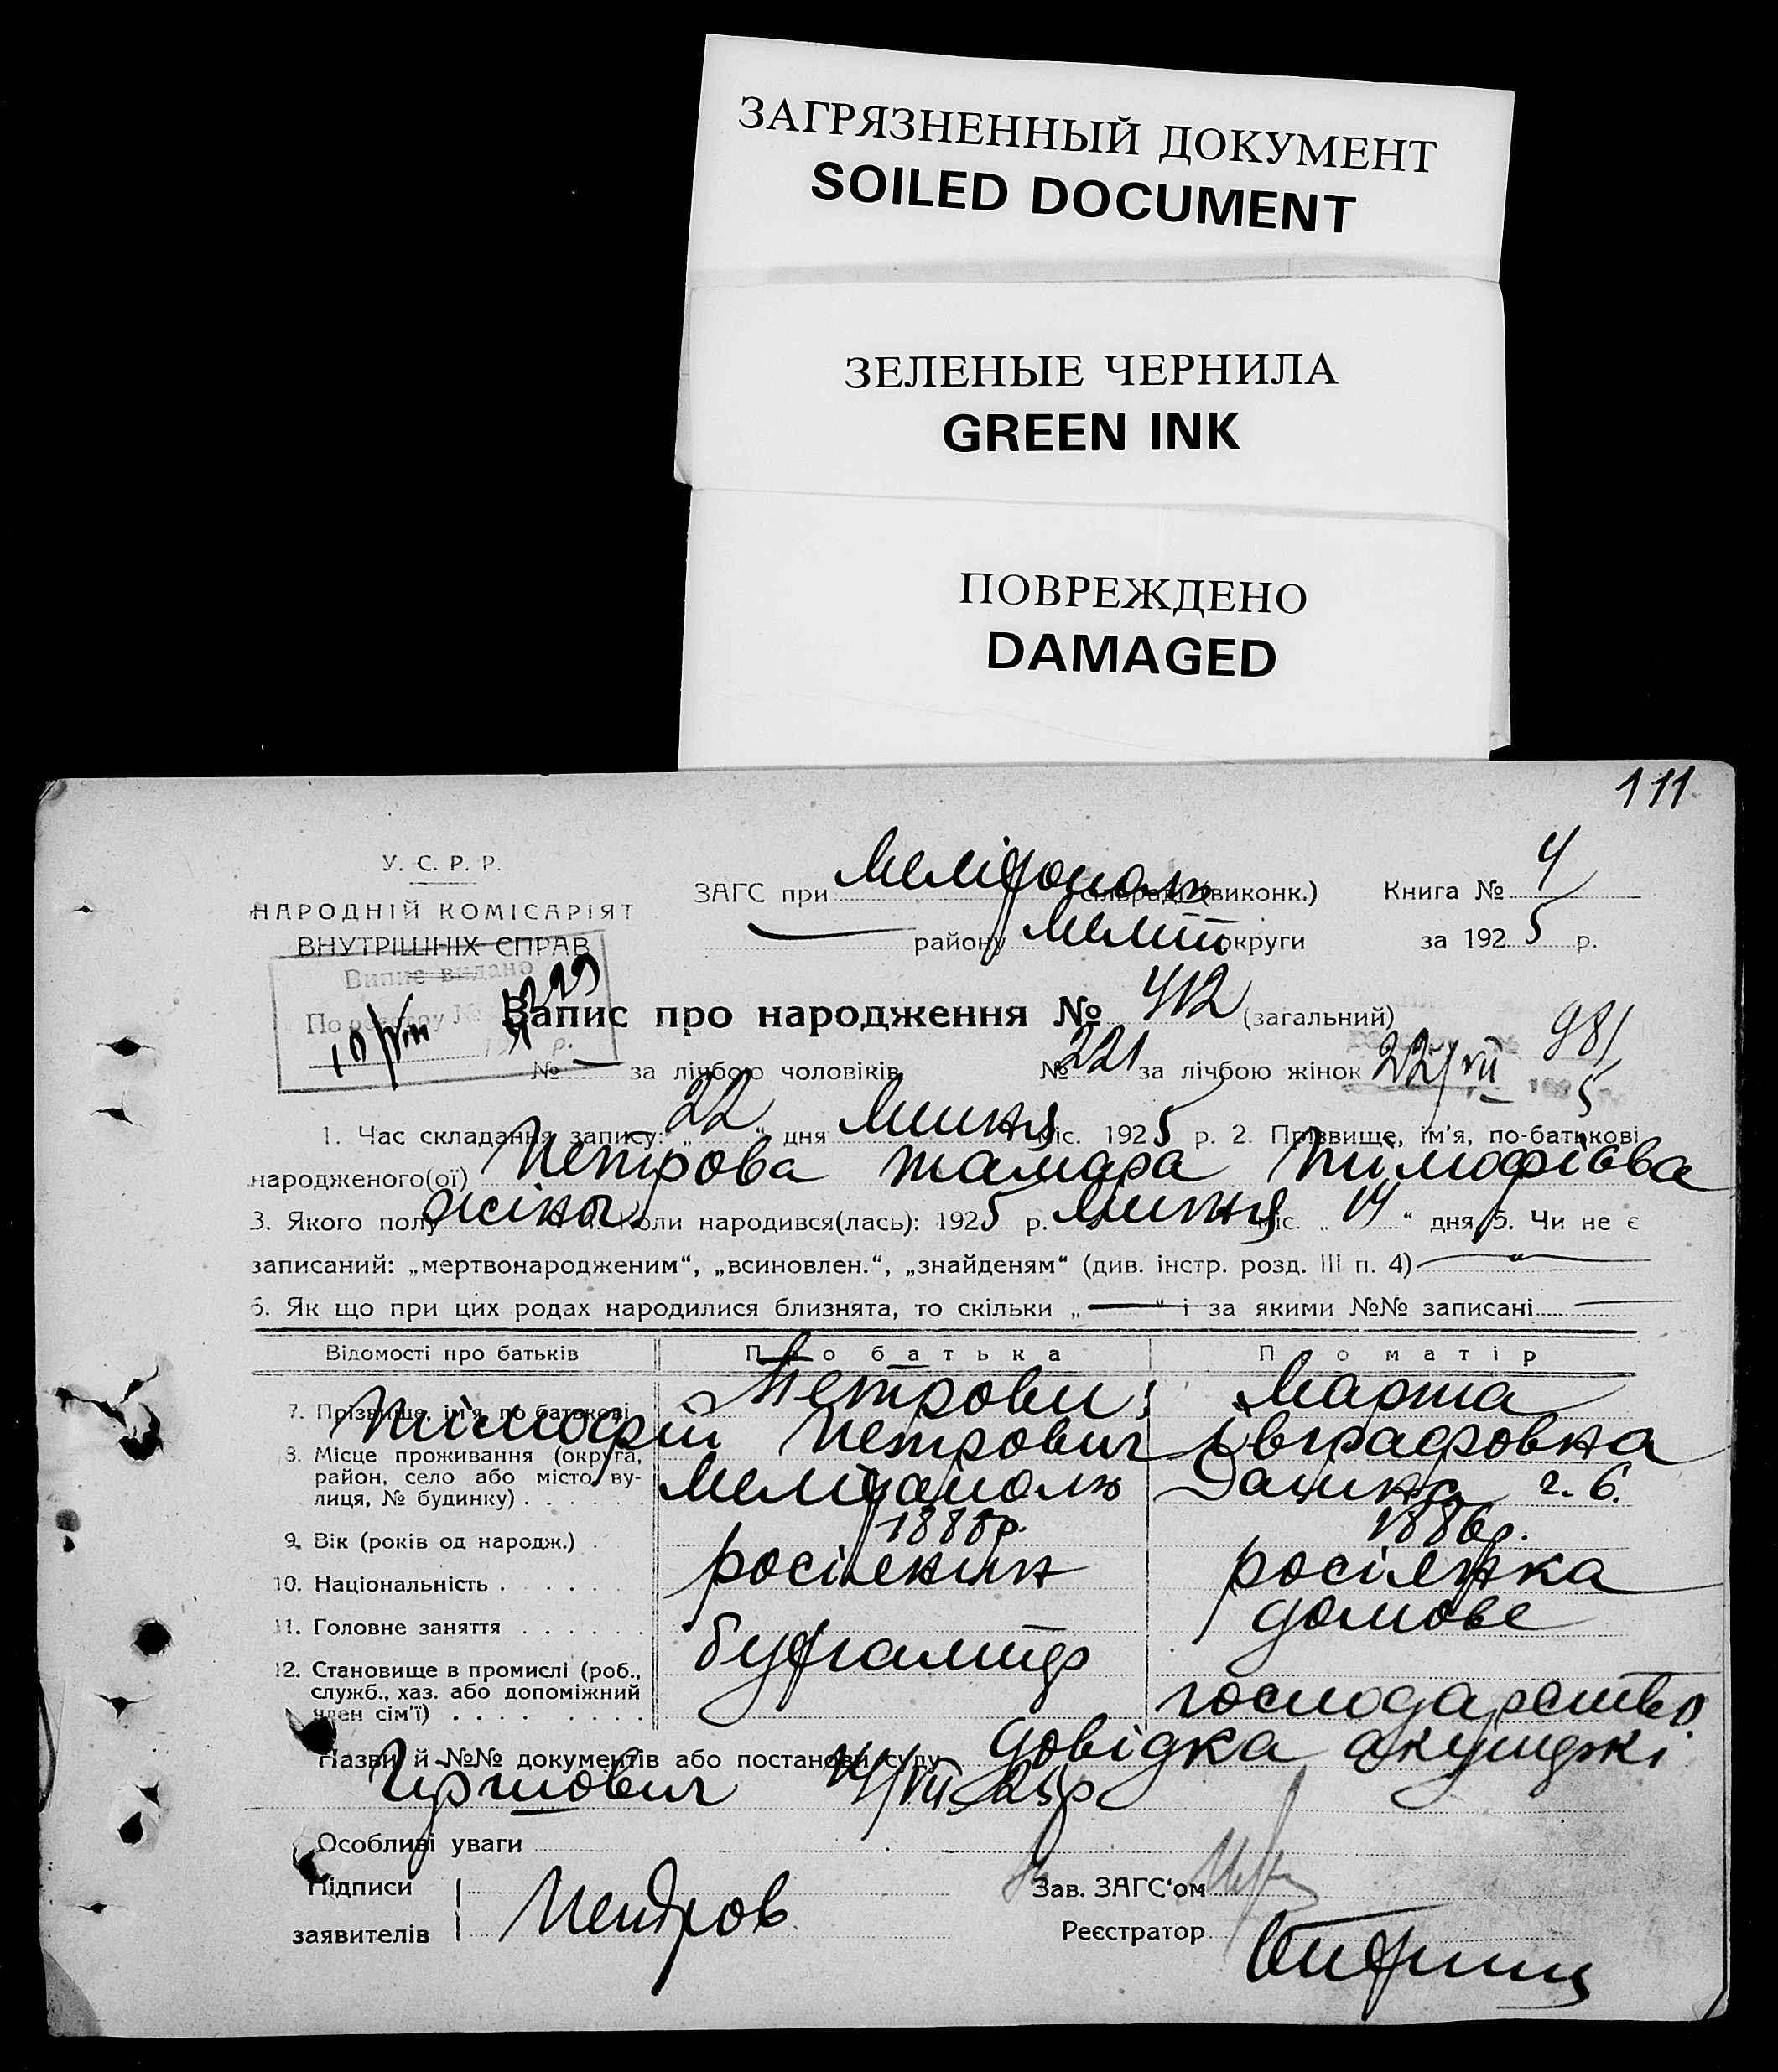 ЗАГРЯЗНЕННЫЙ ДОКУМЕНТ
SOILED DOCUMENT
ЗЕЛЕНЫЕ ЧЕРНИЛА
GREEN INK
ПОВРЕЖДЕНО
DAMAGED
111
У. С. Р. Р.
НАРОДНІЙ КОМІСАРІЯТ
ВНУТРІШНІХ СПРАВ
ЗАГС при Мелітополь сільраді (виконк.) Книга № 4
— району Меліт округи за 1925 р.
Випис видано
По реєстру №
10/VIII
Запис про народження № 412 (загальний)
№ — за лічбою чоловіків № 221 за лічбою жінок 22/VII 981
5
1. Час складання запису: „ 22 “ дня Липня міс. 1925 р. 2. Прізвище, ім'я, по-батькові
народженого(ої) Петрова Тамара Тимофієва
3. Якого полу жіноч. 4. Коли народився(лась): 1925 р. Липня міс. „ 14 “ дня, 5. Чи не є
записаний: „мертвонародженим“, „всиновлен.“, „знайденям“ (див. інстр. розд. III п. 4) — „ —
6. Як що при цих родах народилися близнята, то скільки „ — “ і за якими №№ записані —
Відомості про батьків Про батька Про матір
7. Прізвище, ім'я, по батькові Петрови: Марта
Тімофій Петрович Євграфовна
8. Місце проживання (округа,
район, село або місто, ву-
лиця, № будинку) Мелітополь ч. 6.
9. Вік (років од народж.) 1885р. 1886р.
10. Національність росіянин росіянка
11. Головне заняття бухгалтер домове
12. Становище в промислі (роб.,
служб., хаз. або допоміжний
член сім'ї) господарство
Назви й №№ документів або постанови суду довідка акушерки
Гіршович 14/VII 25р
Особливі уваги
Підписи
заявителів Петров
Зав. ЗАГС'ом
Реєстратор